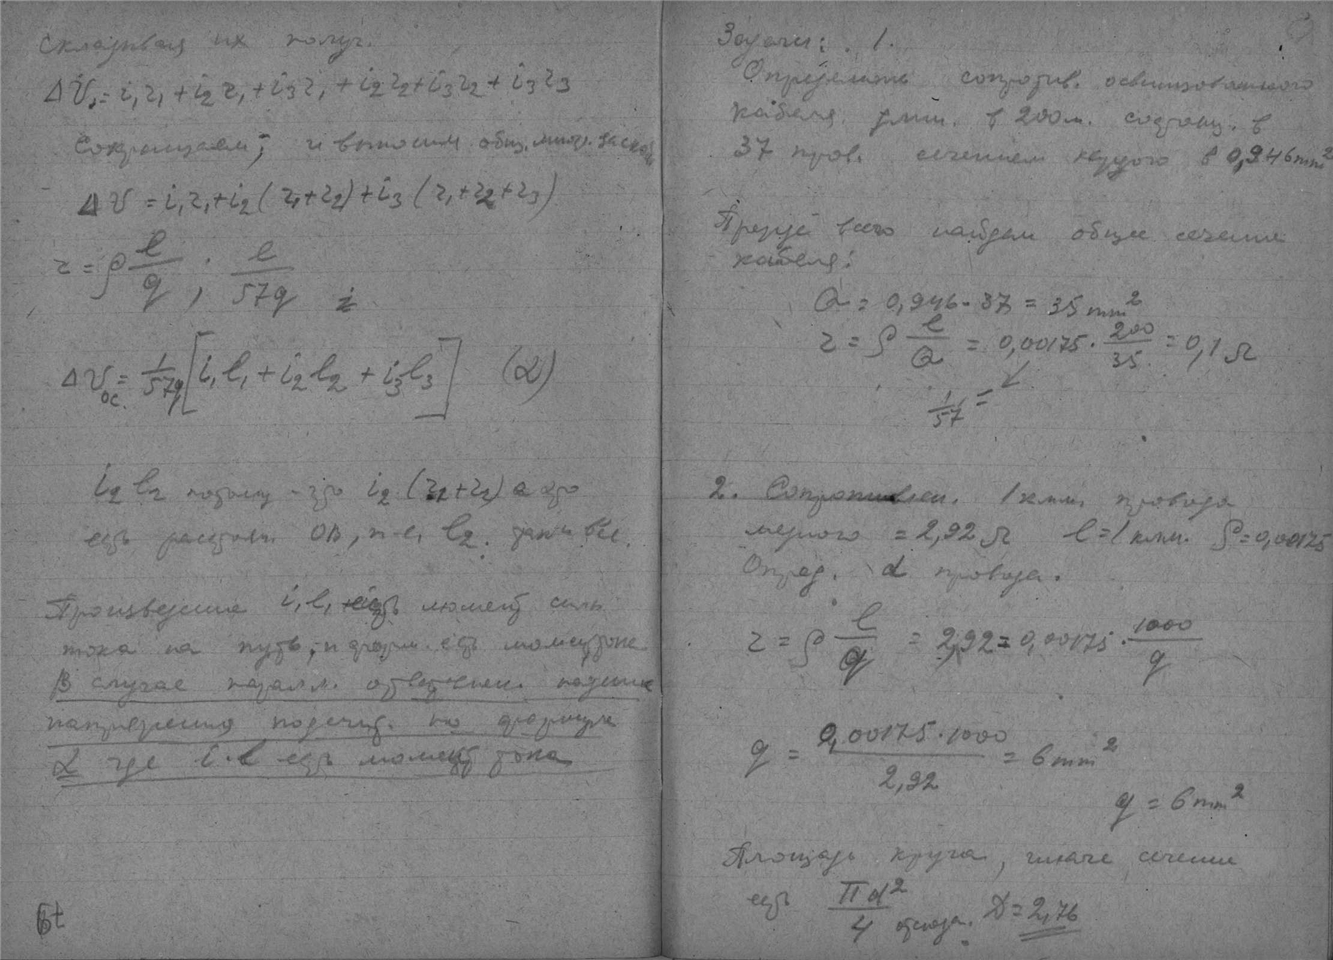 Складывая их получ.
ΔV₁ = i₁r₁ + i₂r₁ + i₃r₁ + i₂r₂ + i₃r₂ + i₃r₃
Сокращаем, и выносим общ. множ. за скоб
ΔV = i₁r₁ + i₂(r₁+r₂) + i₃(r₁+r₂+r₃)
r = ρ l/q , l/57q
ΔVос. = 1/57q [i₁l₁ + i₂l₂ + i₃l₃] (α)
i₂l₂ потому что i₂(r₁+r₂) а это
есть расстоян. ОВ, т-е, l₂.
Произведение i₁l₁ есть момент силы
тока на путь, и есть момент тока
В случае паралл. ответвлен. падение
напряжения подсчит. по формуле
α где i·l есть момент тока
Задачи: 1.
Определить сопротив. освинцованного
кабеля длин. в 200 м. состоящ. в
37 пров. сечением каждого в 0,946 mm²
Прежде всего найдем общее сечение
кабеля:
Q = 0,946 · 37 = 35 mm²
r = ρ l/Q = 0,00175 · 200/35 = 0,1 Ω
1/57 =
2. Сопротивлен. 1 клм. провода
медного = 2,92 Ω l = 1 клм. ρ = 0,00175
Опред. d провода.
r = ρ l/q = 2,92 = 0,00175 · 1000/q
q = 0,00175 · 1000/2,92 = 6 mm²
q = 6 mm²
Площадь круга, иначе сечение
есть Πd²/4 отсюда. D = 2,76